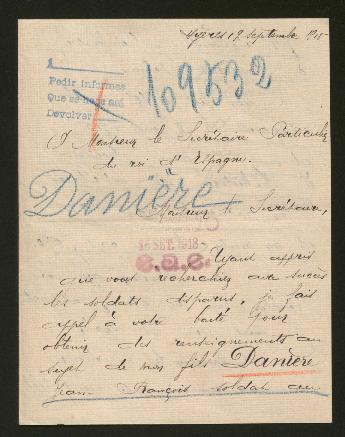 Hyères 17 septembre 1918
1
Pedir informes
Que se
Devolver
109532
A Monsieur le Secrétaire Particulier
du roi d'Espagne.
Danière
Monsieur le Secrétaire,
SET. 1918
Ayant appris
que vous recherchez avec succès
les soldats disparus, je fais
appel à votre bonté pour
obtenir des renseignements au
sujet de mon fils Danière
Jean François soldat au